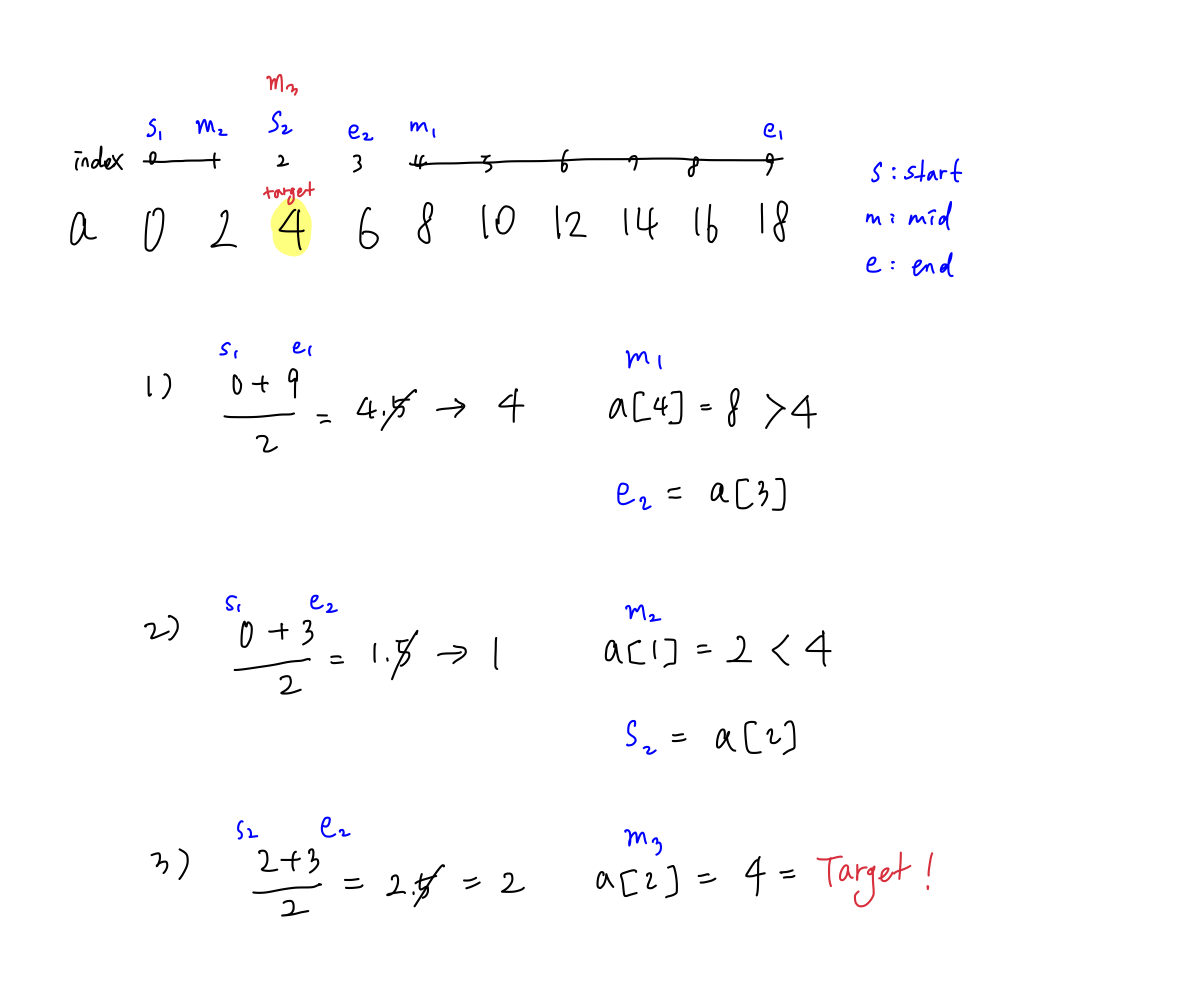 m₃
s₁ m₂ s₂ e₂ m₁ e₁
index 0 1 2 3 4 5 6 7 8 9
target
a 0 2 4 6 8 10 12 14 16 18
s : start
m : mid
e : end
s₁ e₁ m₁
1) 0 + 9 / 2 = 4.5 → 4 a[4] = 8 > 4
e₂ = a[3]
s₁ e₂ m₂
2) 0 + 3 / 2 = 1.5 → 1 a[1] = 2 < 4
s₂ = a[2]
s₂ e₂ m₃
3) 2+3 / 2 = 2.5 = 2 a[2] = 4 = Target!